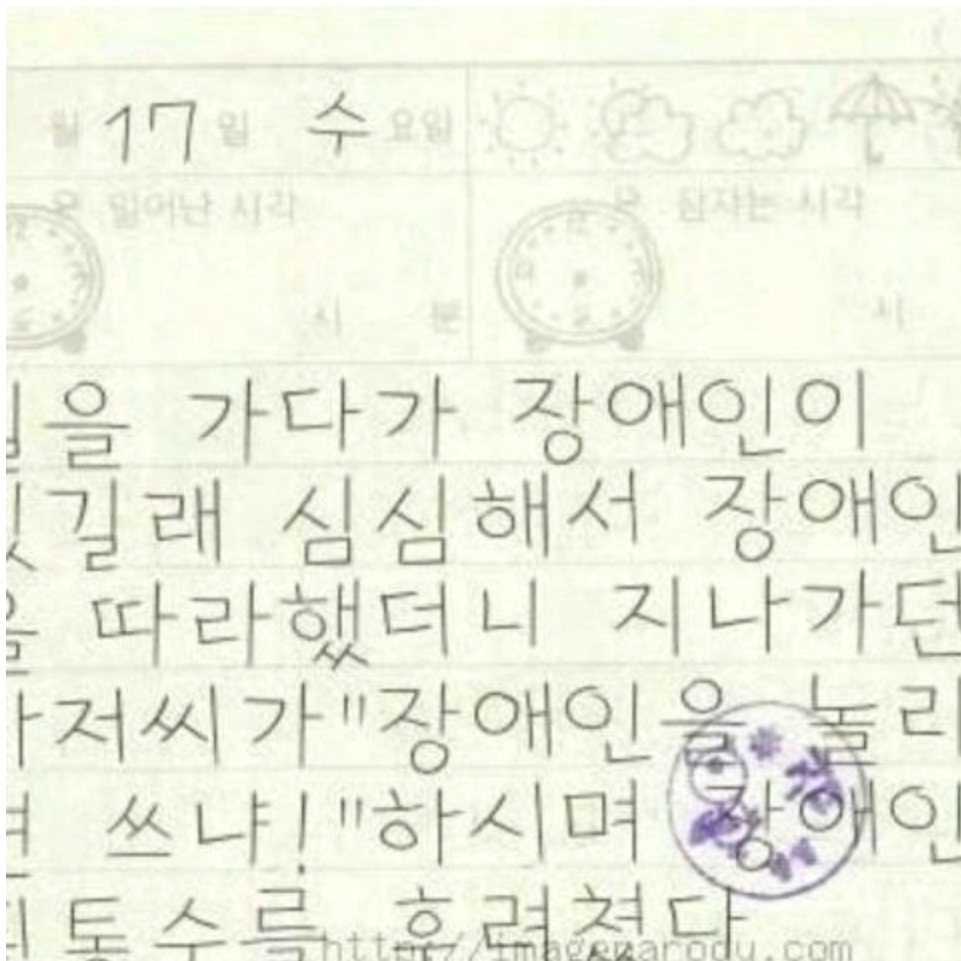 월 17일 수요일
일어난 시각 잠자는 시각
시 분 시
을 가다가 장애인이
길래 심심해서 장애인
을 따라했더니 지나가던
저씨가 "장애인을 놀리
면 쓰냐!" 하시며 장애인
통수를 후려쳤다
http://imageparody.com